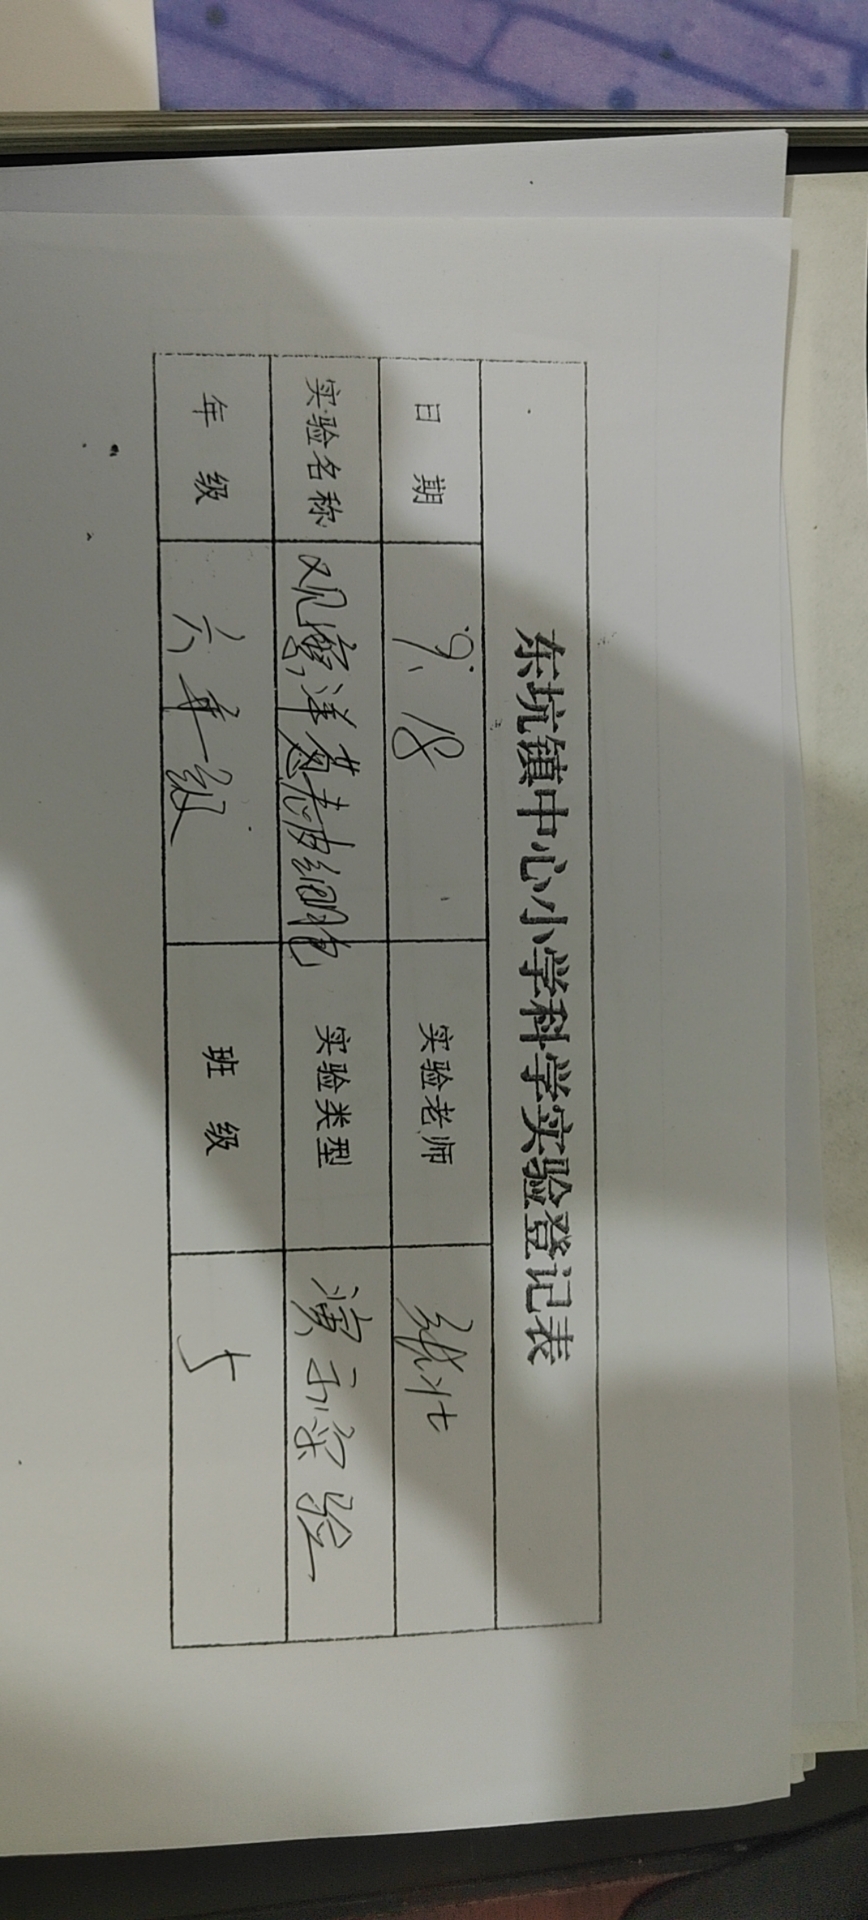 东坑镇中心小学科学实验登记表
日 期 9.18 实验老师 张壮
实验名称 观察洋葱表皮细胞 实验类型 演示实验
年 级 六年级 班 级 5